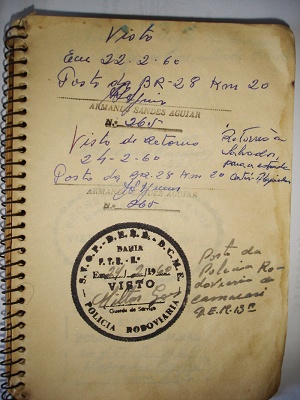 Visto
Em 22-2-60
Posto da BR-28 Km 20
ARMANDO SANDES AGUIAR
N.º 265
Visto de retorno
24-2-60
Posto da BR-28 Km 20
ARMANDO SANDES AGUIAR
N.º 265
Retorno a
Salvador,
para a estrada
S.V.O.P. - D.E.R.B. - D.C.M.E.
BAHIA
P.T.R. -
Em 24/2/1960
VISTO
Milton
Guarda de Serviço
POLICIA RODOVIARIA
Posto da
Policia Ro-
doviaria de
camacari